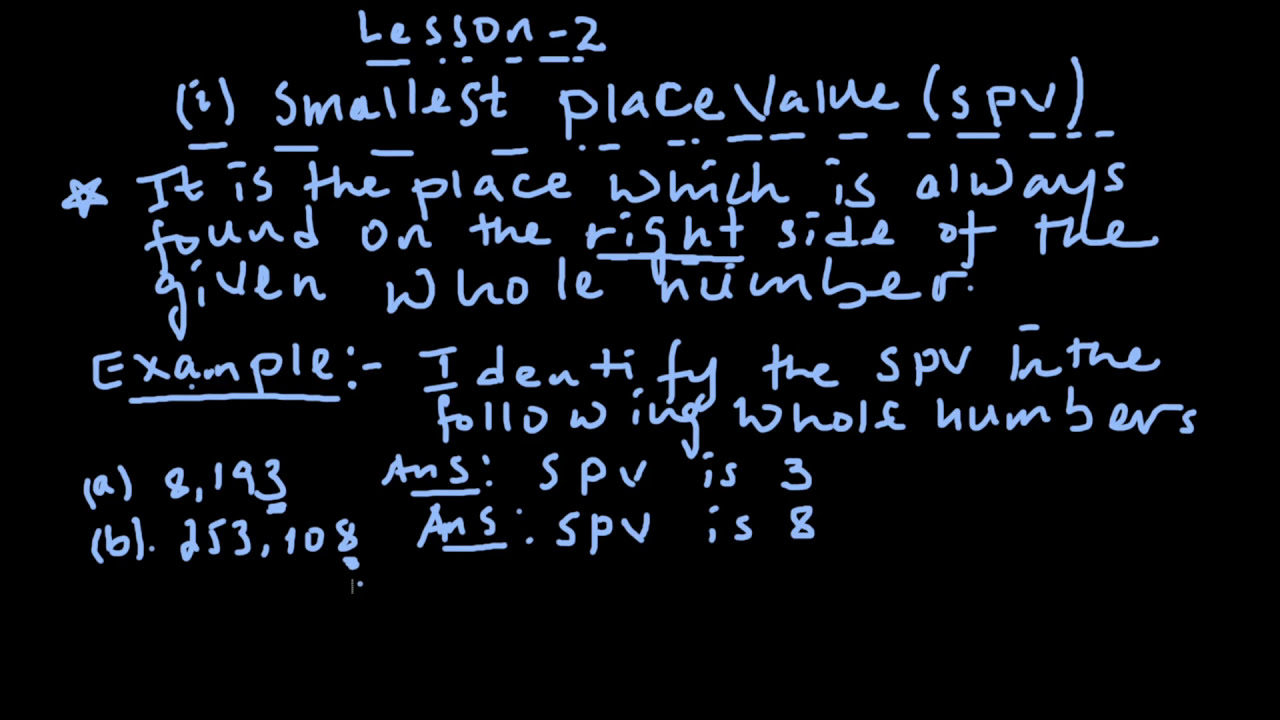 Lesson-2
(i) Smallest place Value (spv)
It is the place which is always
found on the right side of the
given whole number.
Example:- Identify the spv in the
following whole numbers
(a) 8,193 Ans: spv is 3
(b). 253,108 Ans: spv is 8